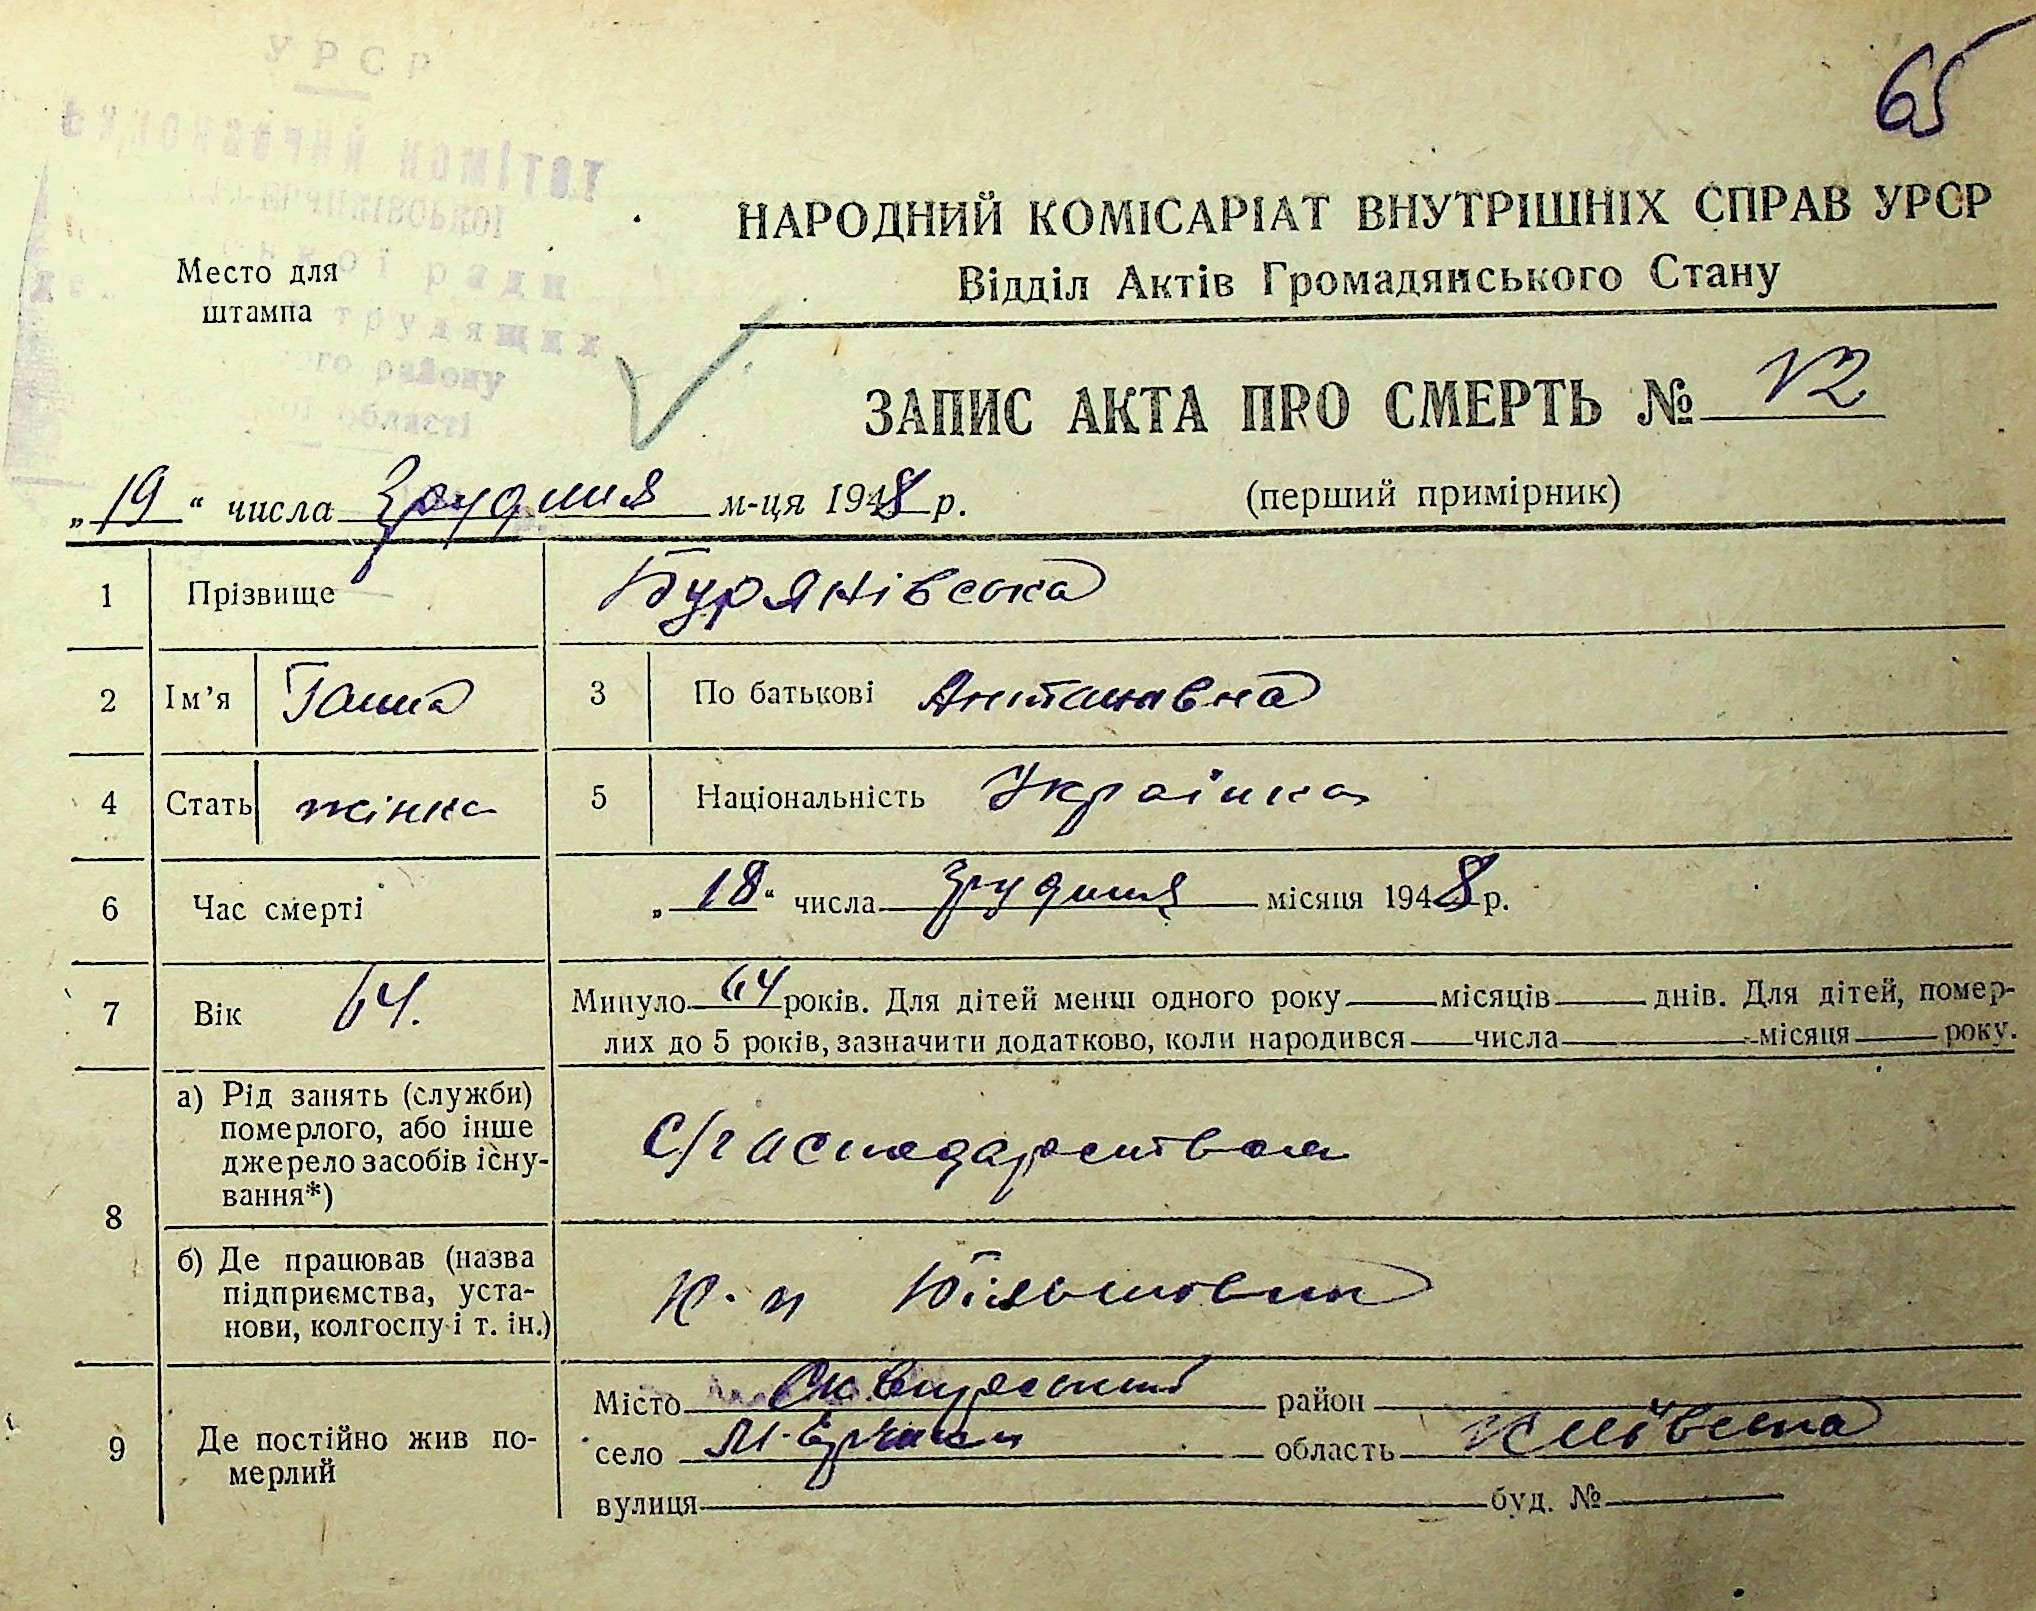 УРСР
65
НАРОДНИЙ КОМІСАРІАТ ВНУТРІШНІХ СПРАВ УРСР
Відділ Актів Громадянського Стану
Место для
штампа
ради
трудящих
району
області
ЗАПИС АКТА ПРО СМЕРТЬ № 12
(перший примірник)
„19“ числа Зрудния м-ця 1948 р.
1 Прізвище Бурянівська
2 Ім’я Ганна 3 По батькові Антонівна
4 Стать жінка 5 Національність Українка
6 Час смерті „18“ числа Зрудния місяця 1948 р.
7 Вік 64. Минуло 64 років. Для дітей менш одного року місяців днів. Для дітей, помер-
лих до 5 років, зазначити додатково, коли народився числа місяця року.
8 а) Рід занять (служби)
померлого, або інше
джерело засобів існу-
вання*)
С/господарством
б) Де працював (назва
підприємства, уста-
нови, колгоспу і т. ін.)
К-п Більшовик
9 Де постійно жив по-
мерлий
Місто Сквирський район
село М-Єрчики область Київська
вулиця буд. №